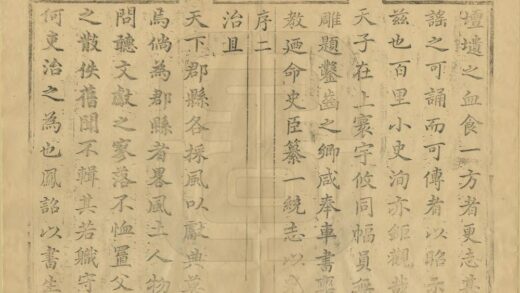 壇壝之血食一方者更志
謠之可誦而可傳者以昭示
茲也百里小吏洵亦鉅觀
天子在上寰宇攸同幅員
雕題鑿齒之鄉咸奉車書
教廼命史臣纂一統志以
序二
治且
天下郡縣各採風以獻典
焉倘為郡縣者畧風土人物
問聽文獻之寥落不恤置父
之散佚舊聞不輯其若職守
何吏治之為也鳳詔以書生